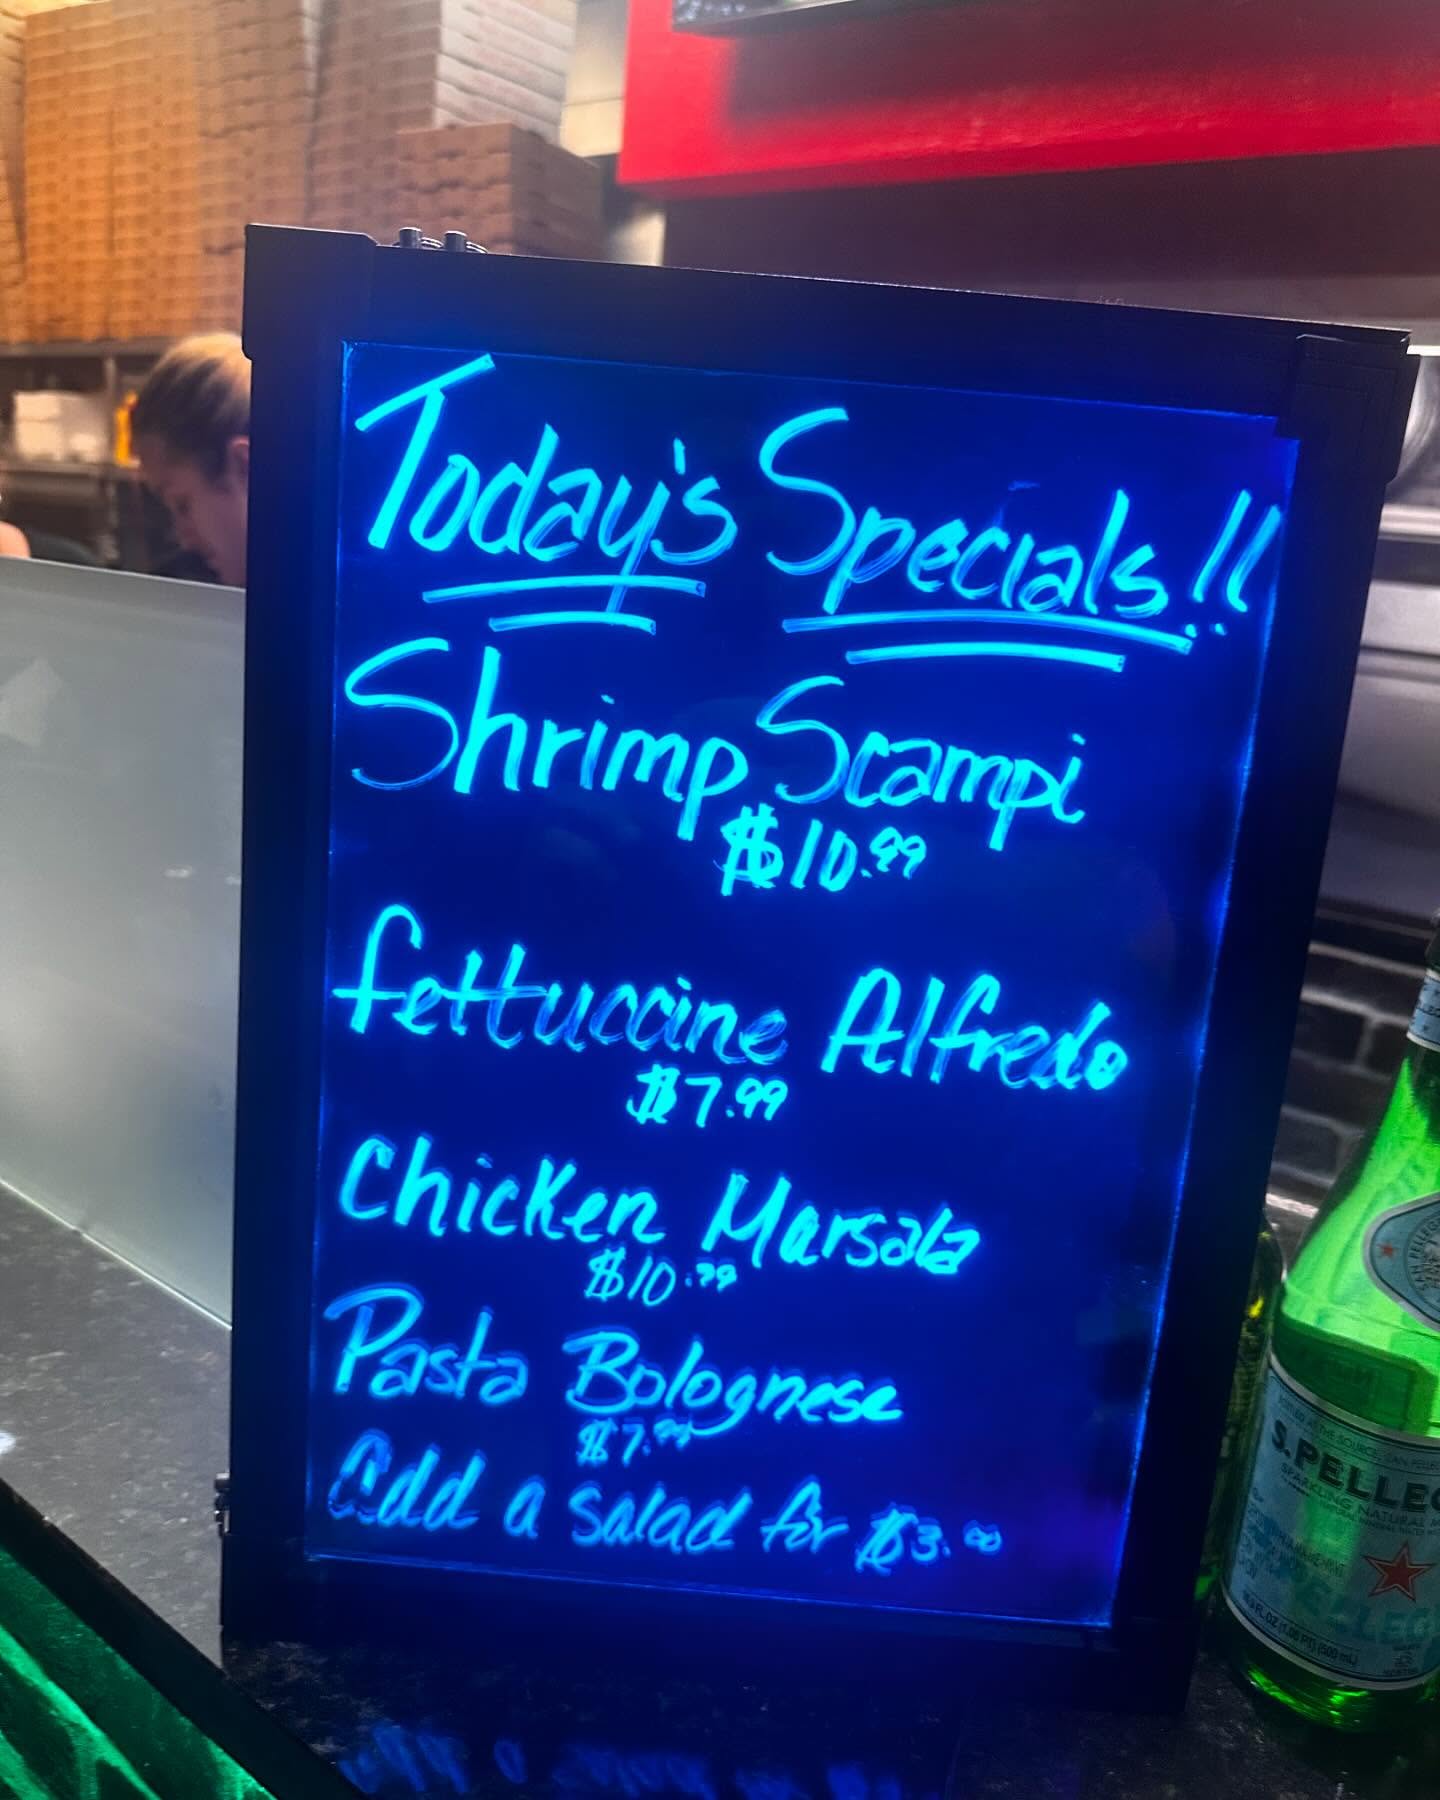 Today's Specials!!
Shrimp Scampi
$10.99
fettuccine Alfredo
$7.99
Chicken Marsala
$10.99
Pasta Bolognese
$7.99
add a salad for $3.00
S.PELLEG
SPARKLING NATURAL M
16.9 FL OZ (1.06 PT) (500 mL)